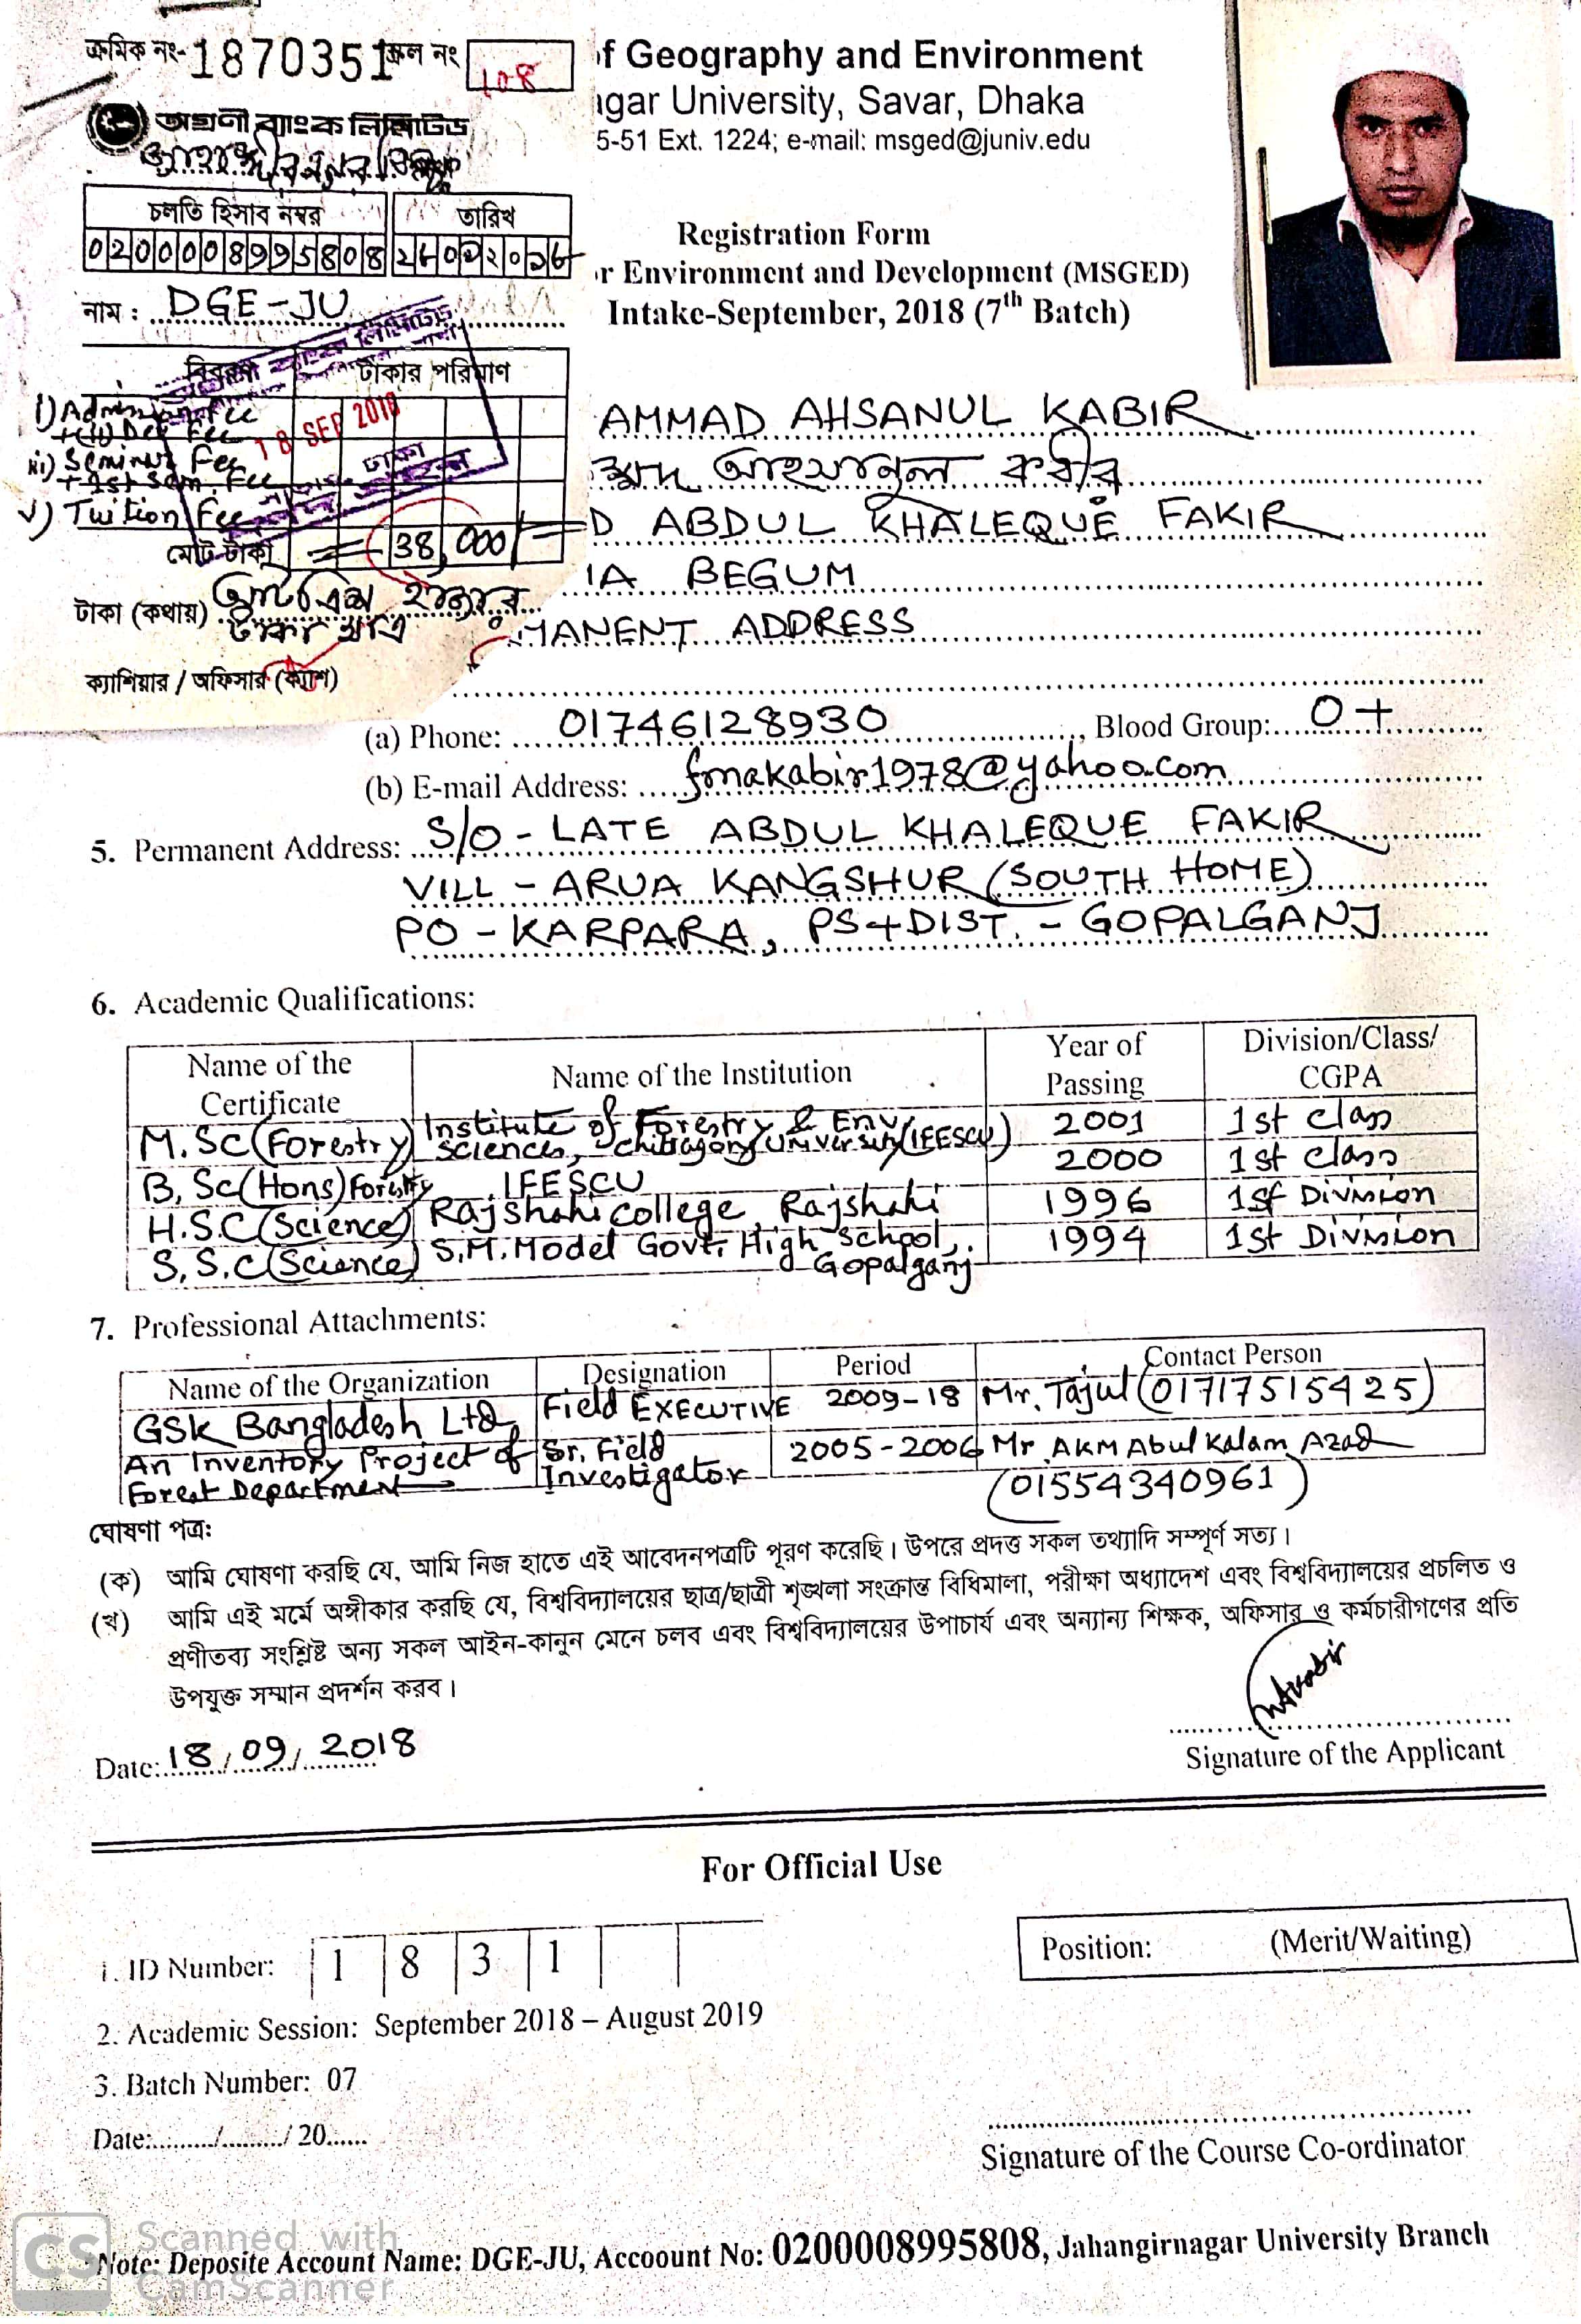 ক্রমিক নং- 1870351 স্ক্রল নং 108
অগ্রণী ব্যাংক লিমিটেড
চলতি হিসাব নম্বর তারিখ
0200008995808
নাম : DGE-JU
বিবরণ টাকার পরিমাণ
i) Admission Fee
+(ii) Dev Fee
iii) Seminar Fee
+ 1st Sem. Fee
v) Tuition Fee
18 SEP 2018
ঢাকা
মোট টাকা = 38,000/=
টাকা (কথায়) আটত্রিশ হাজার
টাকা মাত্র
ক্যাশিয়ার / অফিসার (ক্যাশ)
f Geography and Environment
gar University, Savar, Dhaka
5-51 Ext. 1224; e-mail: msged@juniv.edu
Registration Form
r Environment and Development (MSGED)
Intake-September, 2018 (7th Batch)
AMMAD AHSANUL KABIR
আহসানুল কবীর
D ABDUL KHALEQUE FAKIR
IA BEGUM
MANENT ADDRESS
(a) Phone: 01746128930, Blood Group: O+
(b) E-mail Address: fmakabir1978@yahoo.com
5. Permanent Address: S/O - LATE ABDUL KHALEQUE FAKIR
VILL - ARUA KANGSHUR (SOUTH HOME)
PO - KARPARA, PS+DIST. - GOPALGANJ
6. Academic Qualifications:
Name of the Certificate Name of the Institution Year of Passing Division/Class/ CGPA
M.SC (Forestry) Institute of Forestry & Env. Sciences, Chittagong University (IFESCU) 2001 1st Class
B.Sc (Hons) Forestry IFESCU 2000 1st Class
H.S.C (Science) Rajshahi College, Rajshahi 1996 1st Division
S.S.C (Science) S.M. Model Govt. High School, Gopalganj 1994 1st Division
7. Professional Attachments:
Name of the Organization Designation Period Contact Person
GSK Bangladesh Ltd. Field EXECUTIVE 2009-18 Mr. Tajul (01717515425)
An Inventory Project of Forest Department Sr. Field Investigator 2005-2006 Mr. AKM Abul Kalam Azad
(01554340961)
ঘোষণা পত্র:
(ক) আমি ঘোষণা করছি যে, আমি নিজ হাতে এই আবেদনপত্রটি পূরণ করেছি। উপরে প্রদত্ত সকল তথ্যাদি সম্পূর্ণ সত্য।
(খ) আমি এই মর্মে অঙ্গীকার করছি যে, বিশ্ববিদ্যালয়ের ছাত্র/ছাত্রী শৃঙ্খলা সংক্রান্ত বিধিমালা, পরীক্ষা অধ্যাদেশ এবং বিশ্ববিদ্যালয়ের প্রচলিত ও
প্রণীতব্য সংশ্লিষ্ট অন্য সকল আইন-কানুন মেনে চলব এবং বিশ্ববিদ্যালয়ের উপাচার্য এবং অন্যান্য শিক্ষক, অফিসার ও কর্মচারীগণের প্রতি
উপযুক্ত সম্মান প্রদর্শন করব।
Date: 18/09/2018
Signature of the Applicant
For Official Use
1. ID Number: 1 8 3 1
Position: (Merit/Waiting)
2. Academic Session: September 2018 – August 2019
3. Batch Number: 07
Date:........./........./ 20......
Signature of the Course Co-ordinator
Note: Deposite Account Name: DGE-JU, Accoount No: 0200008995808, Jahangirnagar University Branch
CS Scanned with
CamScanner